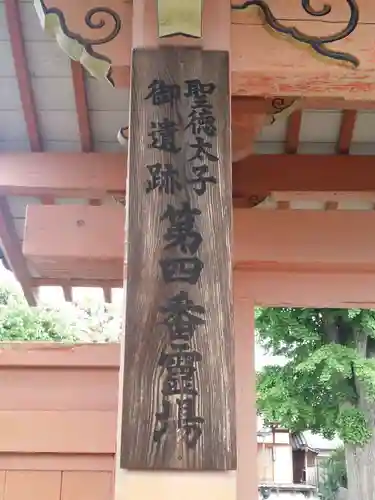 聖徳太子
御遺跡
第四番霊場